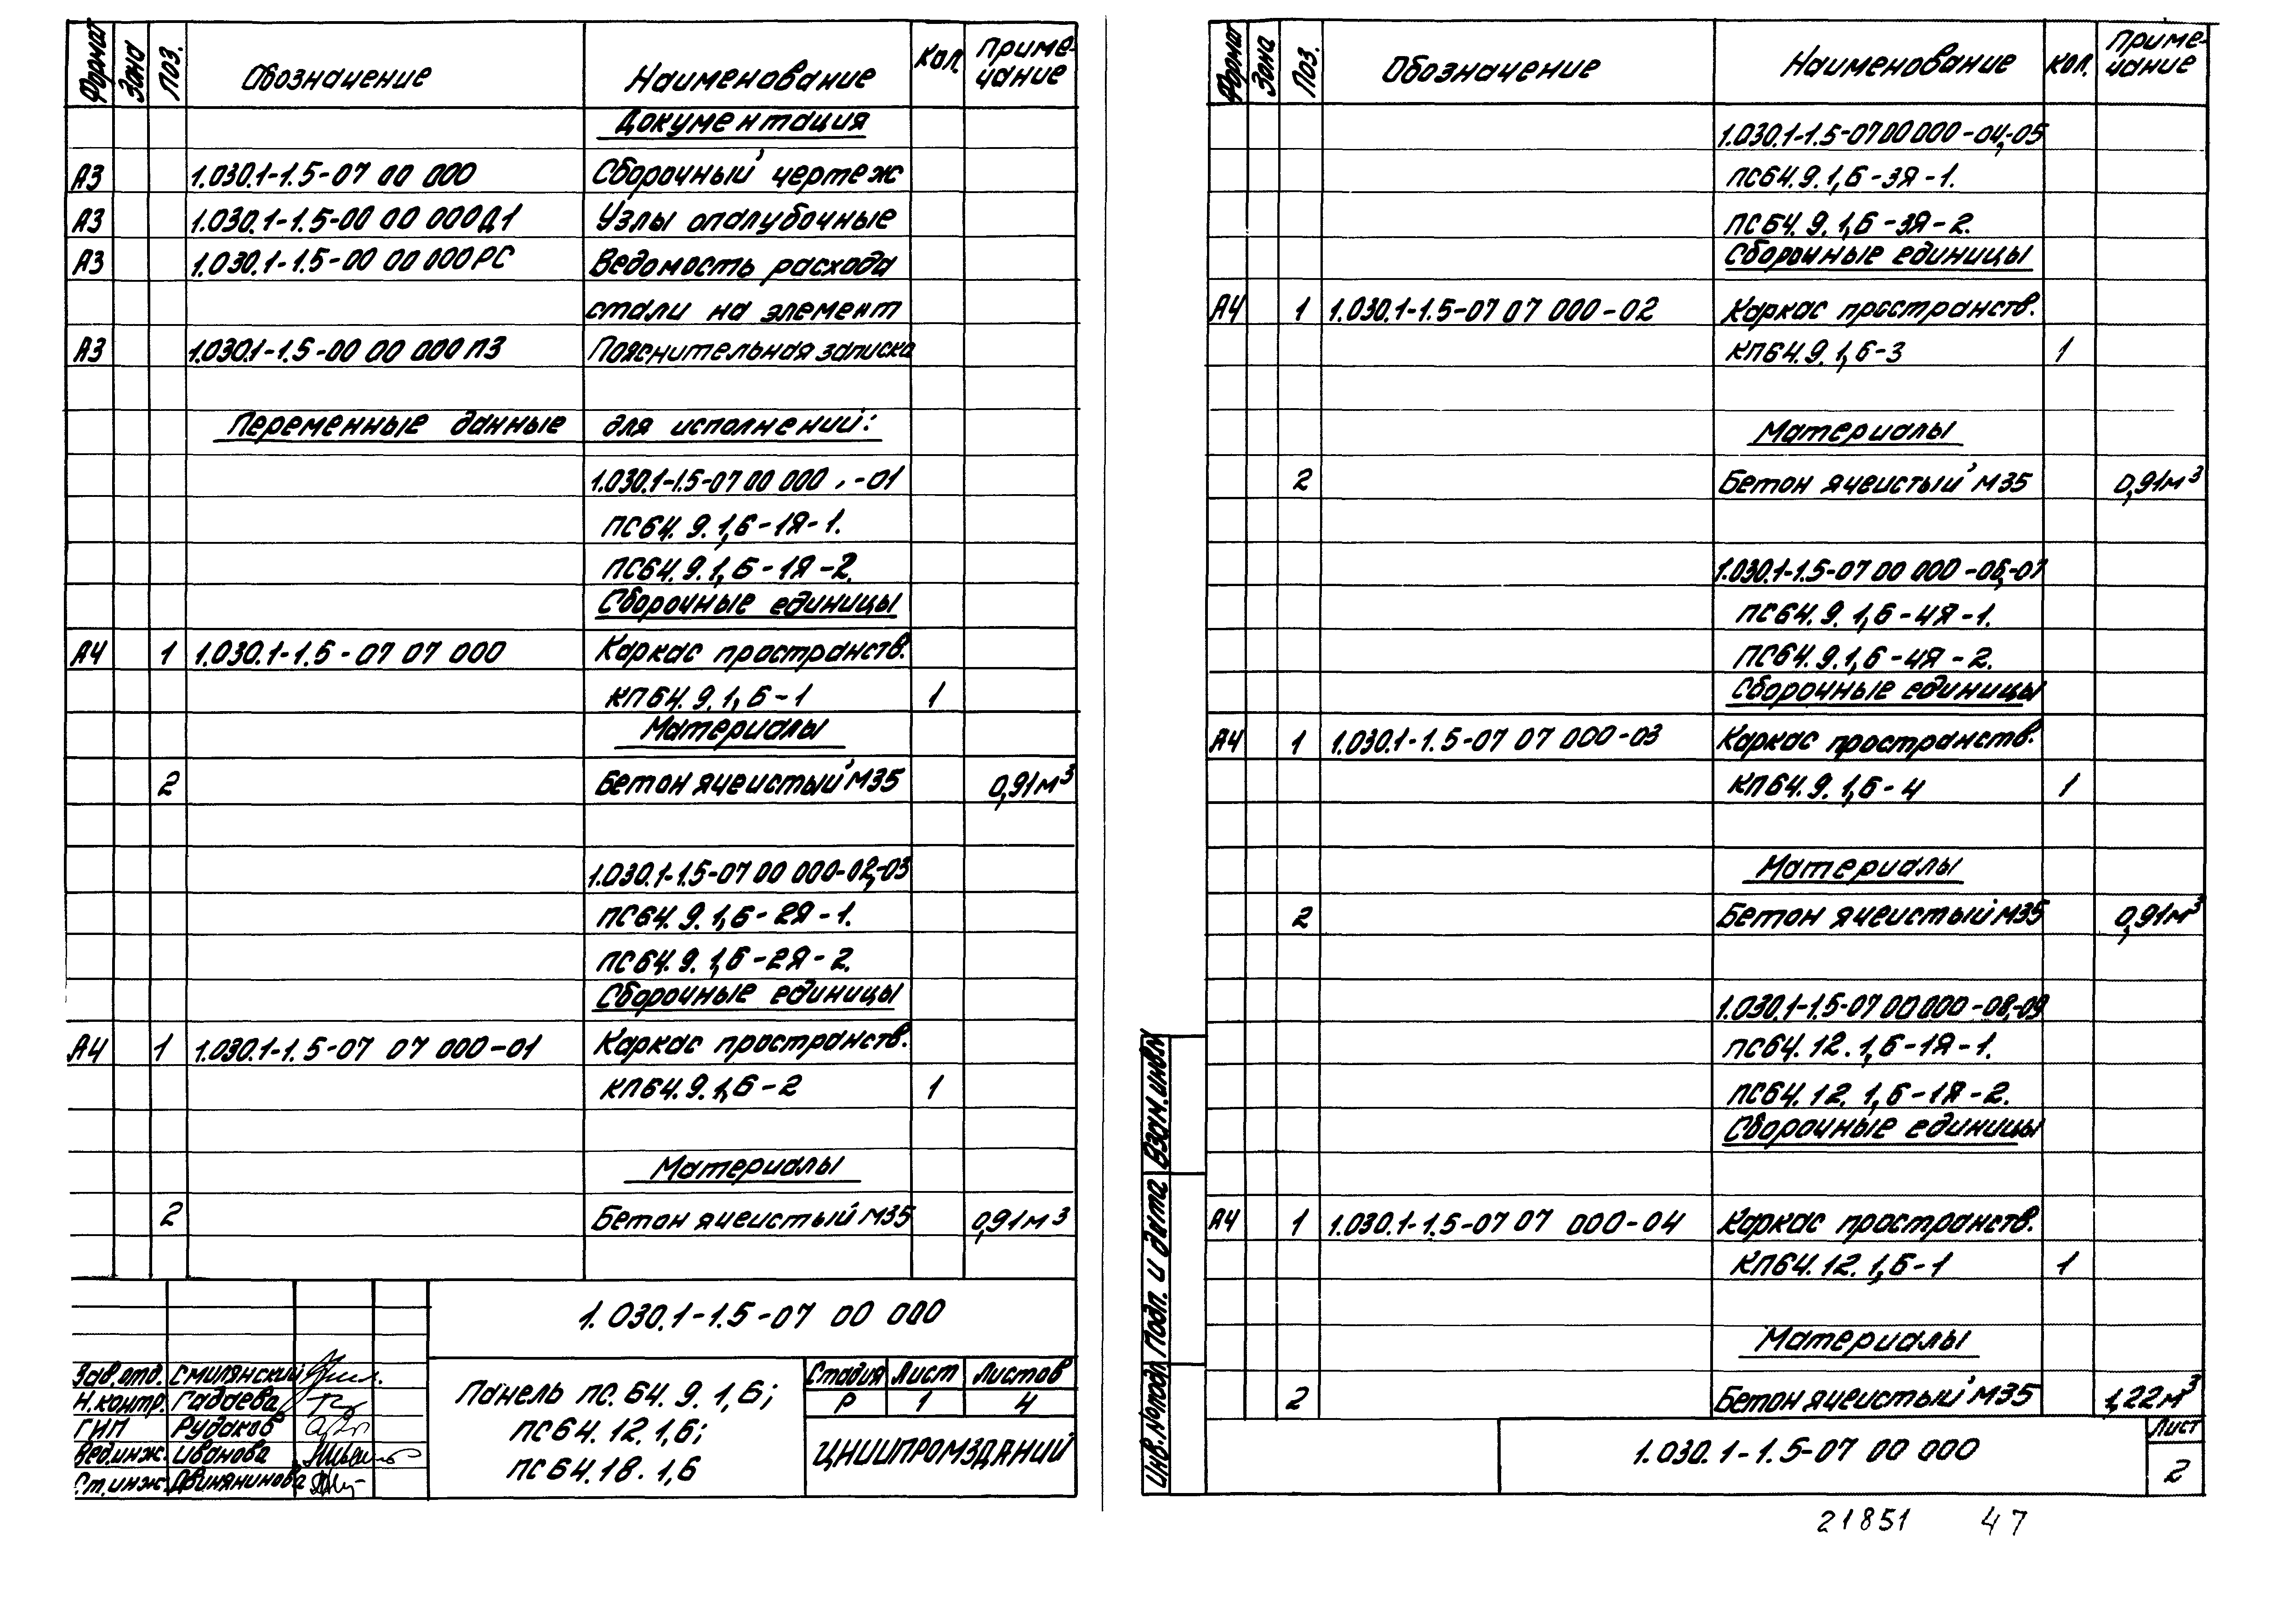 Формат Зона Поз. Обозначение Наименование Кол. Приме-
чание
Документация
А3 1.030.1-1.5-07 00 000 Сборочный чертеж
А3 1.030.1-1.5-00 00 000Д1 Узлы опалубочные
А3 1.030.1-1.5-00 00 000РС Ведомость расхода
стали на элемент
А3 1.030.1-1.5-00 00 000ПЗ Пояснительная записка
Переменные данные для исполнений:
1.030.1-1.5-07 00 000 , -01
ПС64.9.1,6-1Я-1.
ПС64.9.1,6-1Я-2.
Сборочные единицы
А4 1 1.030.1-1.5-07 07 000 Каркас пространств.
КП64.9.1,6-1 1
Материалы
2 Бетон ячеистый М35 0,91м³
1.030.1-1.5-07 00 000-02,-03
ПС64.9.1,6-2Я-1.
ПС64.9.1,6-2Я-2.
Сборочные единицы
А4 1 1.030.1-1.5-07 07 000-01 Каркас пространств.
КП64.9.1,6-2 1
Материалы
2 Бетон ячеистый М35 0,91м³
1.030.1-1.5-07 00 000
Зав.отд. Смилянский
Н.контр. Гадаева
ГИП Рудаков
Вед.инж. Иванова
Ст.инж. Двинянинова
Панель ПС.64.9.1,6;
ПС64.12.1,6;
ПС64.18.1,6
Стадия Лист Листов
Р 1 4
ЦНИИПРОМЗДАНИЙ
Формат Зона Поз. Обозначение Наименование Кол. Приме-
чание
1.030.1-1.5-07 00 000-04,-05
ПС64.9.1,6-3Я-1.
ПС64.9.1,6-3Я-2.
Сборочные единицы
А4 1 1.030.1-1.5-07 07 000-02 Каркас пространств.
КП64.9.1,6-3 1
Материалы
2 Бетон ячеистый М35 0,91м³
1.030.1-1.5-07 00 000-06,-07
ПС64.9.1,6-4Я-1.
ПС64.9.1,6-4Я-2.
Сборочные единицы
А4 1 1.030.1-1.5-07 07 000-03 Каркас пространств.
КП64.9.1,6-4 1
Материалы
2 Бетон ячеистый М35 0,91м³
1.030.1-1.5-07 00 000-08,-09
ПС64.12.1,6-1Я-1.
ПС64.12.1,6-1Я-2.
Сборочные единицы
А4 1 1.030.1-1.5-07 07 000-04 Каркас пространств.
КП64.12.1,6-1 1
Материалы
2 Бетон ячеистый М35 1,22м³
Инв.№подл. Подп. и дата Взам.инв.№
1.030.1-1.5-07 00 000
Лист
2
21851 47